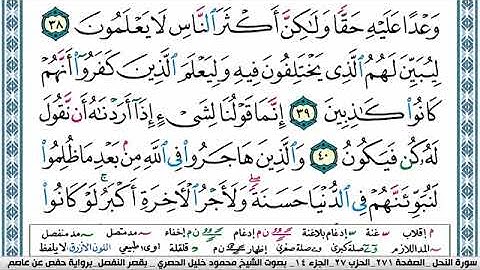 وَعْدًا عَلَيْهِ حَقًّا وَلَٰكِنَّ أَكْثَرَ النَّاسِ لَا يَعْلَمُونَ ٣٨
لِيُبَيِّنَ لَهُمُ الَّذِي يَخْتَلِفُونَ فِيهِ وَلِيَعْلَمَ الَّذِينَ كَفَرُوا أَنَّهُمْ
كَانُوا كَٰذِبِينَ ٣٩ إِنَّمَا قَوْلُنَا لِشَيْءٍ إِذَا أَرَدْنَٰهُ أَن نَّقُولَ
لَهُ كُن فَيَكُونُ ٤٠ وَالَّذِينَ هَاجَرُوا فِي اللَّهِ مِنۢ بَعْدِ مَا ظُلِمُوا
لَنُبَوِّئَنَّهُمْ فِي الدُّنْيَا حَسَنَةً وَلَأَجْرُ الْآخِرَةِ أَكْبَرُ لَوْ كَانُوا
م إقلاب غنة إدغام بلاغنة ن م إدغام ن م إخفاء مد متصل مد منفصل
المد اللازم صلة كبرى صلة صغرى إظهار ن م قلقلة اوى طبيعي اللون الأزرق لا يلفظ
سورة النحل _ الصفحة ٢٧١ _ الحزب ٢٧ _ الجزء ١٤ _ بصوت الشيخ محمود خليل الحصري _ بقصر المنفصل _ برواية حفص عن عاصم